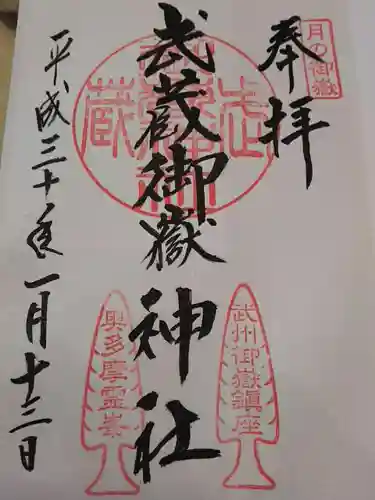 奉拝
月の御嶽
武蔵御嶽神社
武州御嶽鎮座
奥多摩霊峯
平成三十一年一月十三日